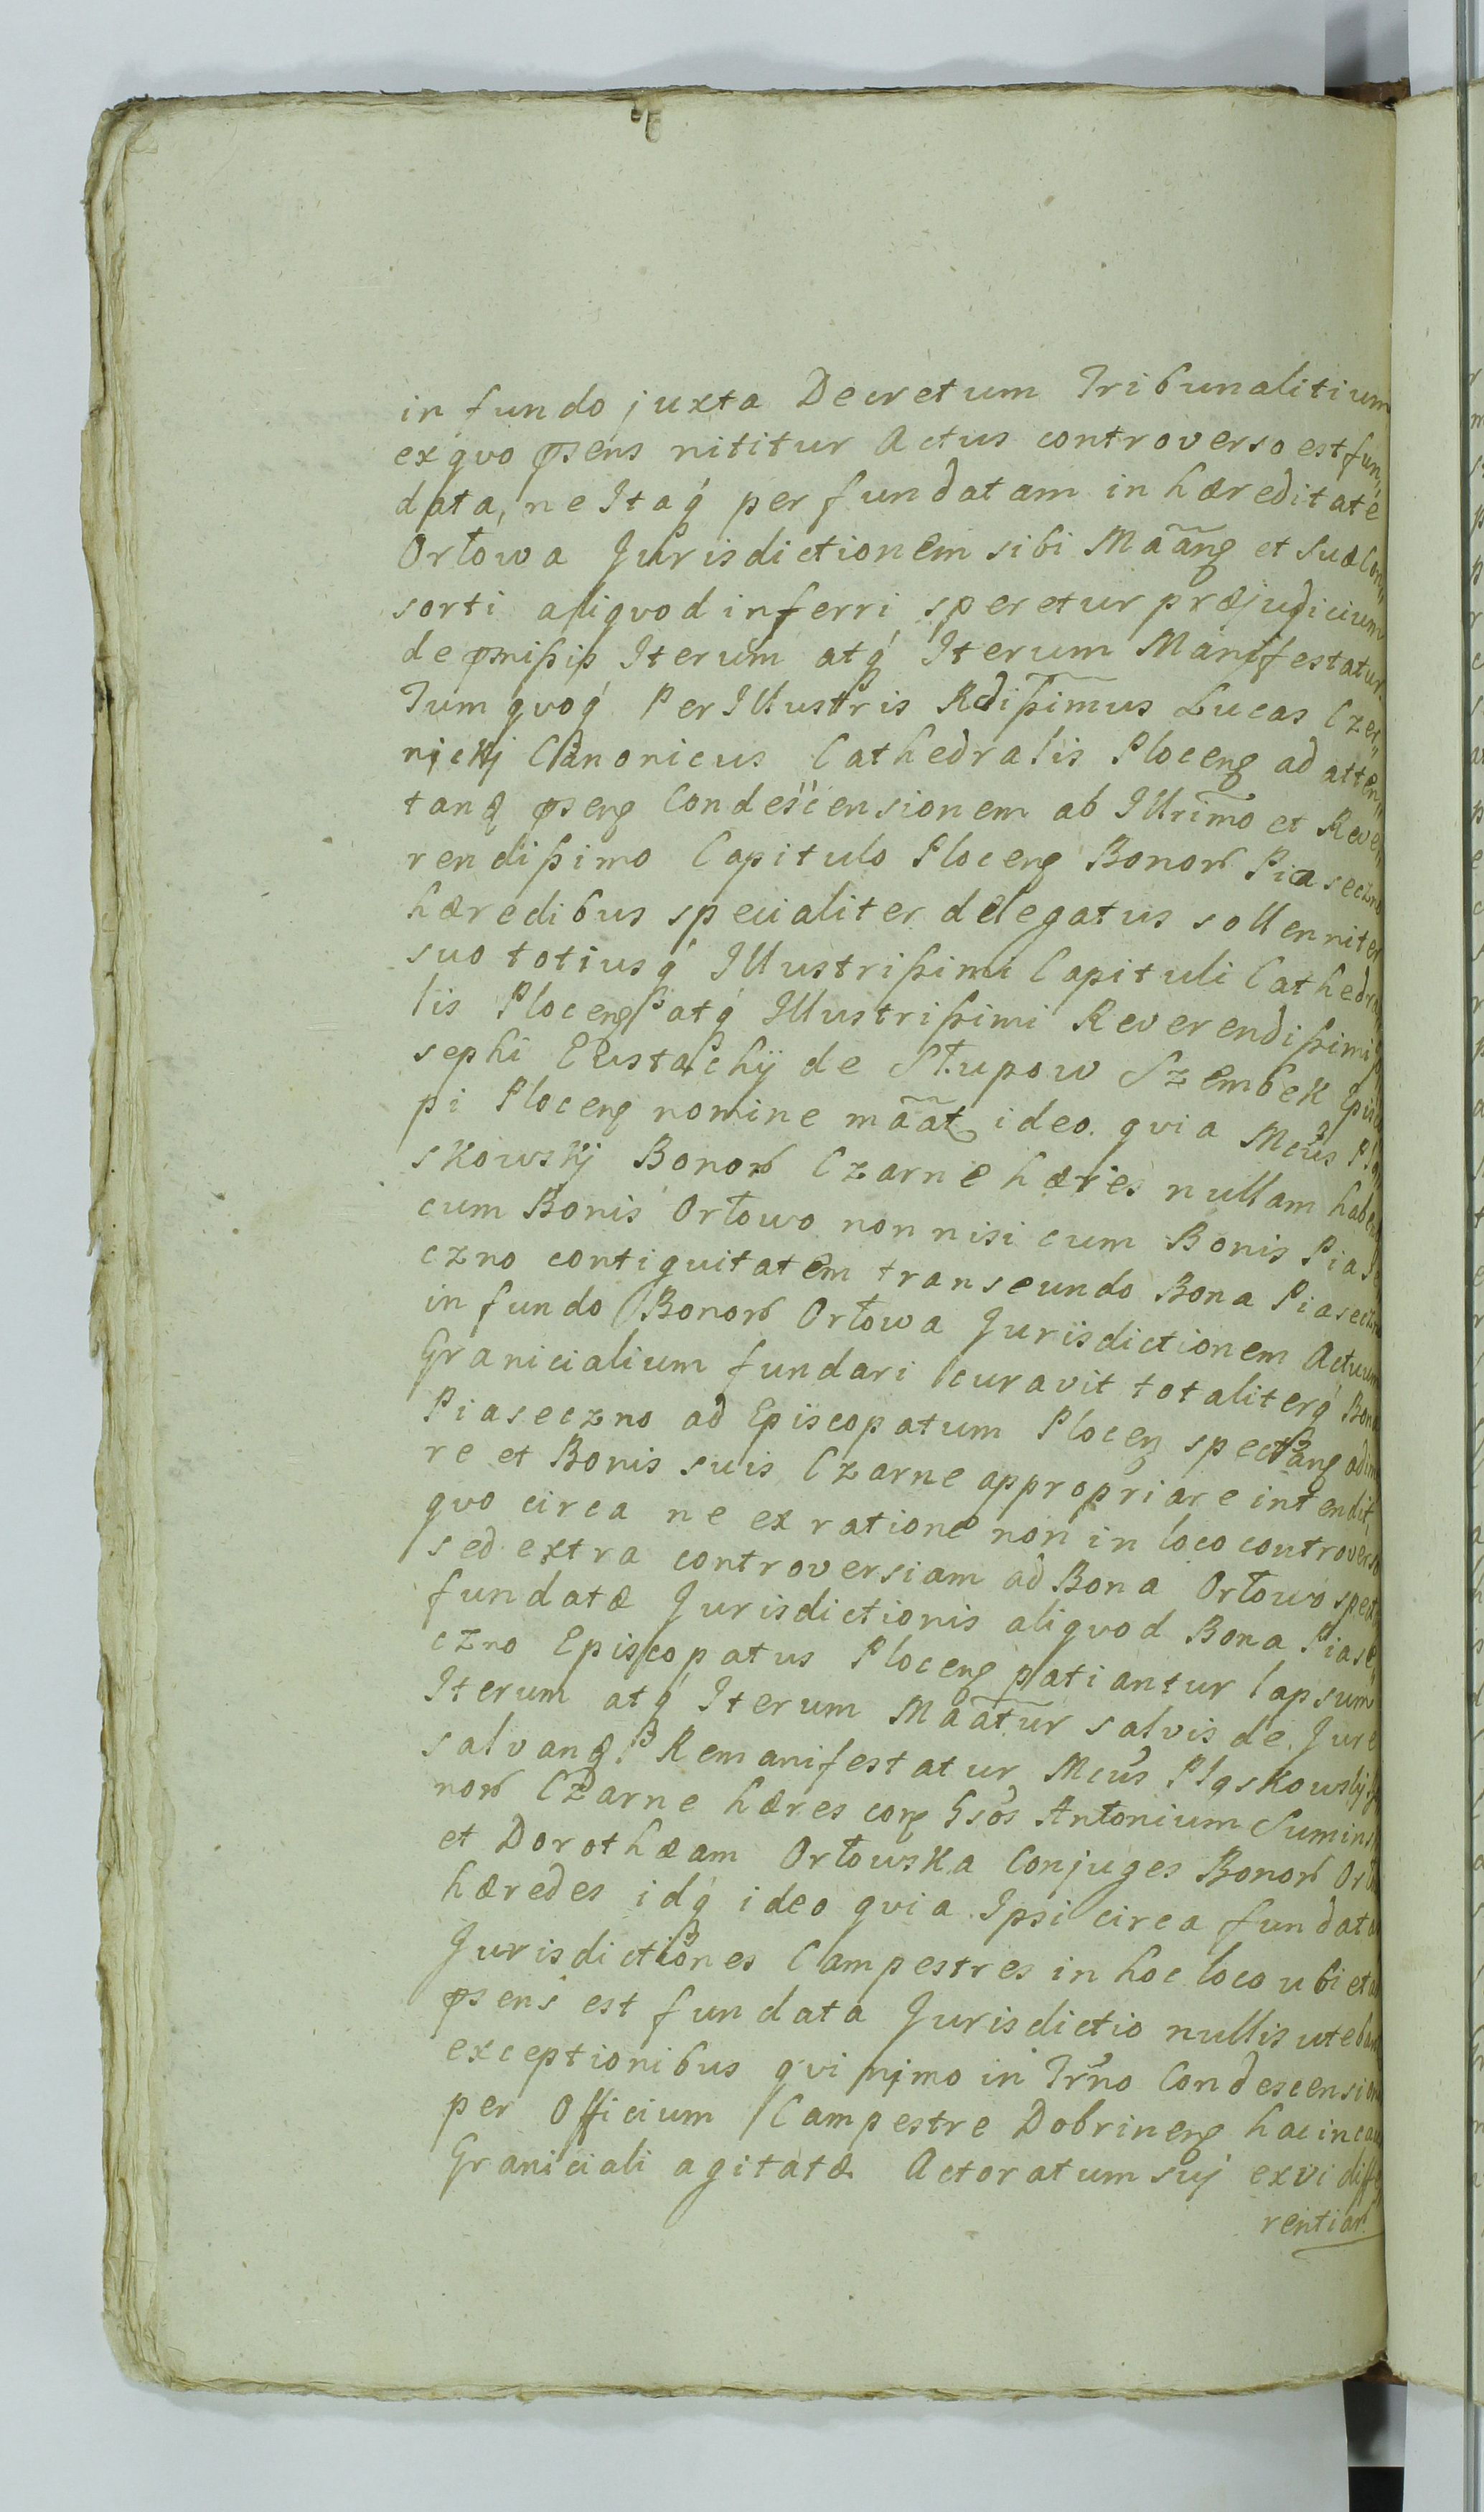 in fundo juxta Decretum Tribunalitium
ex quo pṣens nititur Actus controverso est fun„
data, ne Itaq́ per fundatam in hæreditate
Orłowa Jurisdictionem sibi Mããng et suæ Con„
sorti aliquod inferri speretur præjudicium
de pṃißis Iterum atq́ Iterum Manifestatur.
Tum quoq́ Per Illustris Rdißimus Lucas Czer„
nickj Canonicus Cathedralis Ploceng ad atten„
tanꝗ pṣeng Condescensionem ab Illrimo et Reve„
rendißimo Capitulo Ploceng Bonoꝝ Piaseczno
hæredibus specialiter delegatus sollenniter
suo totiusq́ Illustrißimi Capituli Cathedra„
lis Ploceng atq́ Illustrißimi Reverendißimi
sephi Eustachij de Słupow Szembek Episco
pi Ploceng nomine mããt ideo quia Mcus
skowskj Bonoꝝ Czarne hæres nullam haben
cum Bonis Orłowo non nisi cum Bonis Piase
czno contiguitatem transeundo Bona Piaseczno
in fundo Bonoꝝ Orłowa Jurisdictionem Actuum
Granicialium fundari curavit totaliterq́ Bona
Piaseczno ad Episcopatum Ploceng spectang adime
re et Bonis suis Czarne appropriare intendit,
quo circa ne ex ratione non in loco controverso
sed extra controversiam ad Bona Orłowo spect
fundatæ Jurisdictionis aliquod Bona Piase„
czno Episcopatus Ploceng patiantur lapsum
Iterum atq́ Iterum Mããtur salvis de Jure
salvanꝗ. Remanifestatur Mcus Pląskowskj
noꝝ Czarne hæres corg Gsos Antonium Sumins
et Dorothæam Orłowska Conjuges Bonoꝝ Orło
hæredes idq́ ideo quia Ipsi circa fundatas
Jurisdictiones Campestres in hoc loco ubi et
pṣens est fundata Jurisdictio nullis uteban
exceptionibus qui nimo in Trno Condescension
per Officium Campestre Dobrineng hac in cau
Graniciali agitatæ Actoratum suj ex vi diffe
rentiaꝝ